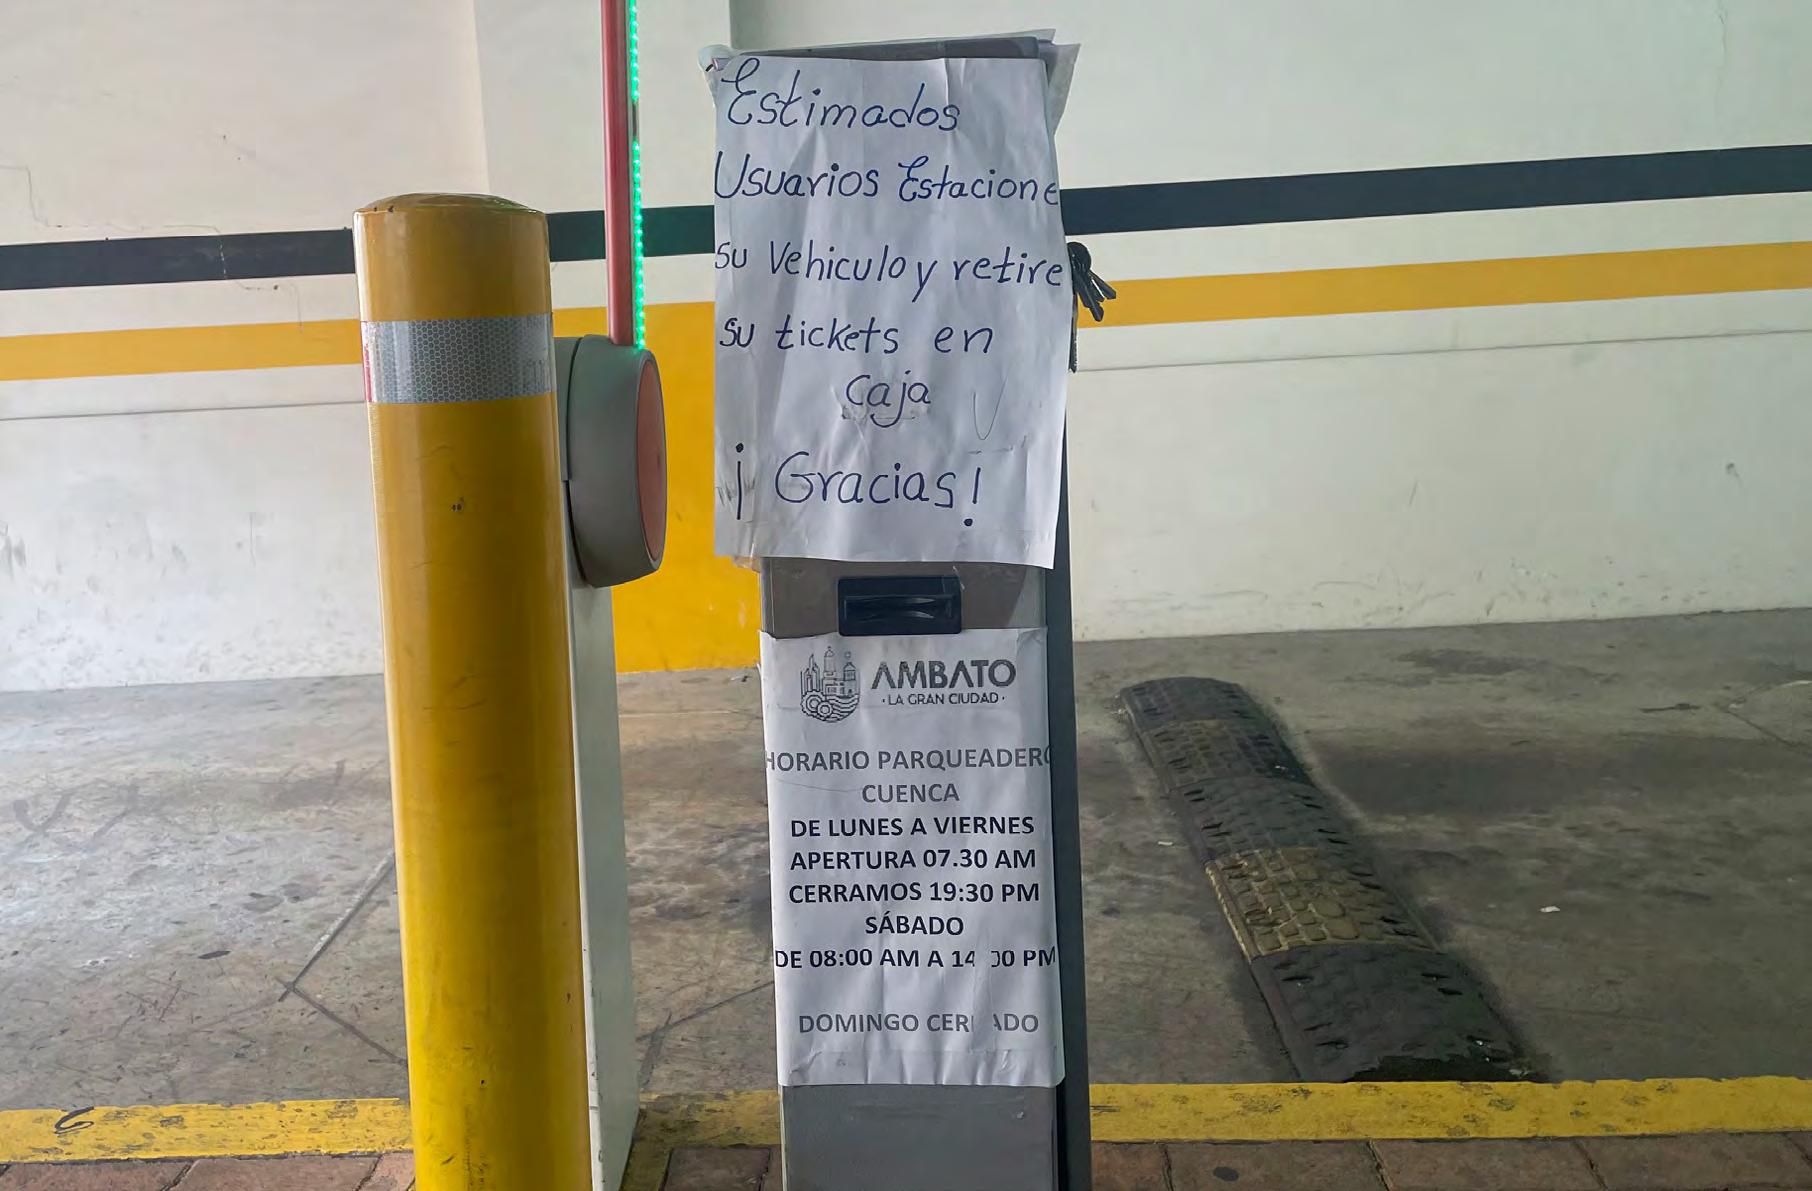 Estimados
Usuarios Estacione
su Vehiculo y retire
su tickets en
caja
¡Gracias!
AMBATO
·LA GRAN CIUDAD·
HORARIO PARQUEADERO
CUENCA
DE LUNES A VIERNES
APERTURA 07.30 AM
CERRAMOS 19:30 PM
SÁBADO
DE 08:00 AM A 14:00 PM
DOMINGO CERRADO